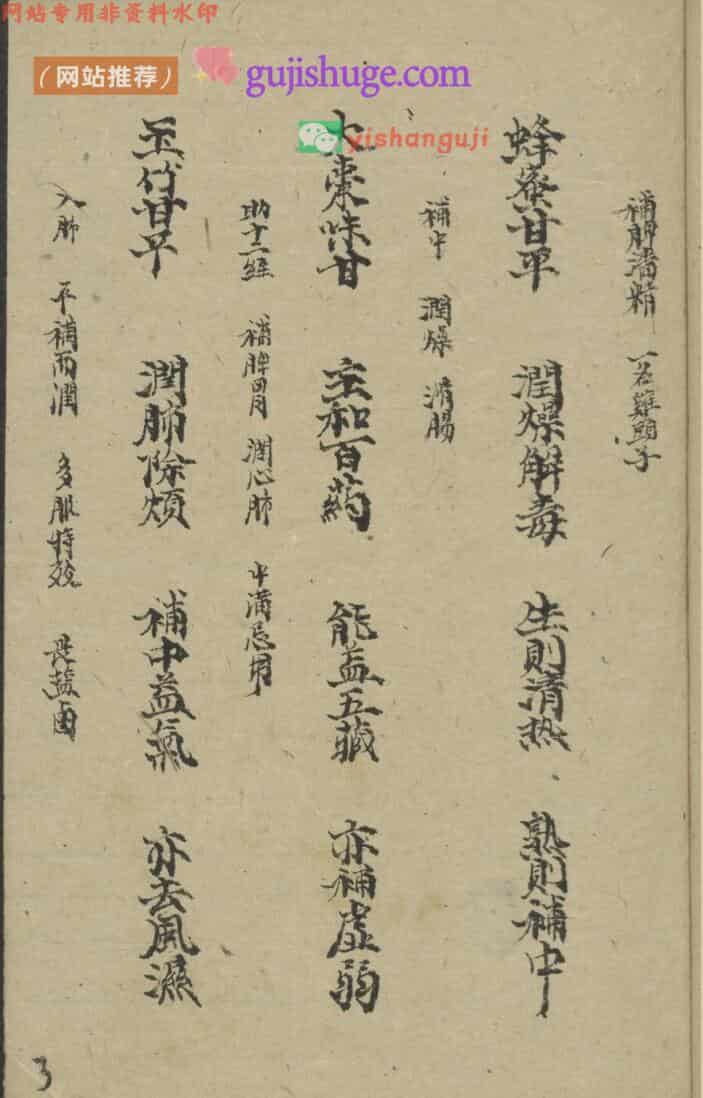 网站专用非资料水印
(网站推荐) gujishuge.com
yishanguji
補脾濇精 一名雞頭子
蜂蜜甘平 潤燥解毒 生則清热 熟則補中
補中 潤燥 滑腸
大棗味甘 主和百药 能益五臓 亦補虛弱
助十二經 補脾胃 潤心肺 中滿忌用
玉竹甘平 潤肺除煩 補中益氣 亦去風濕
入肺 平補而潤 多服特效 畏鹽鹵
3